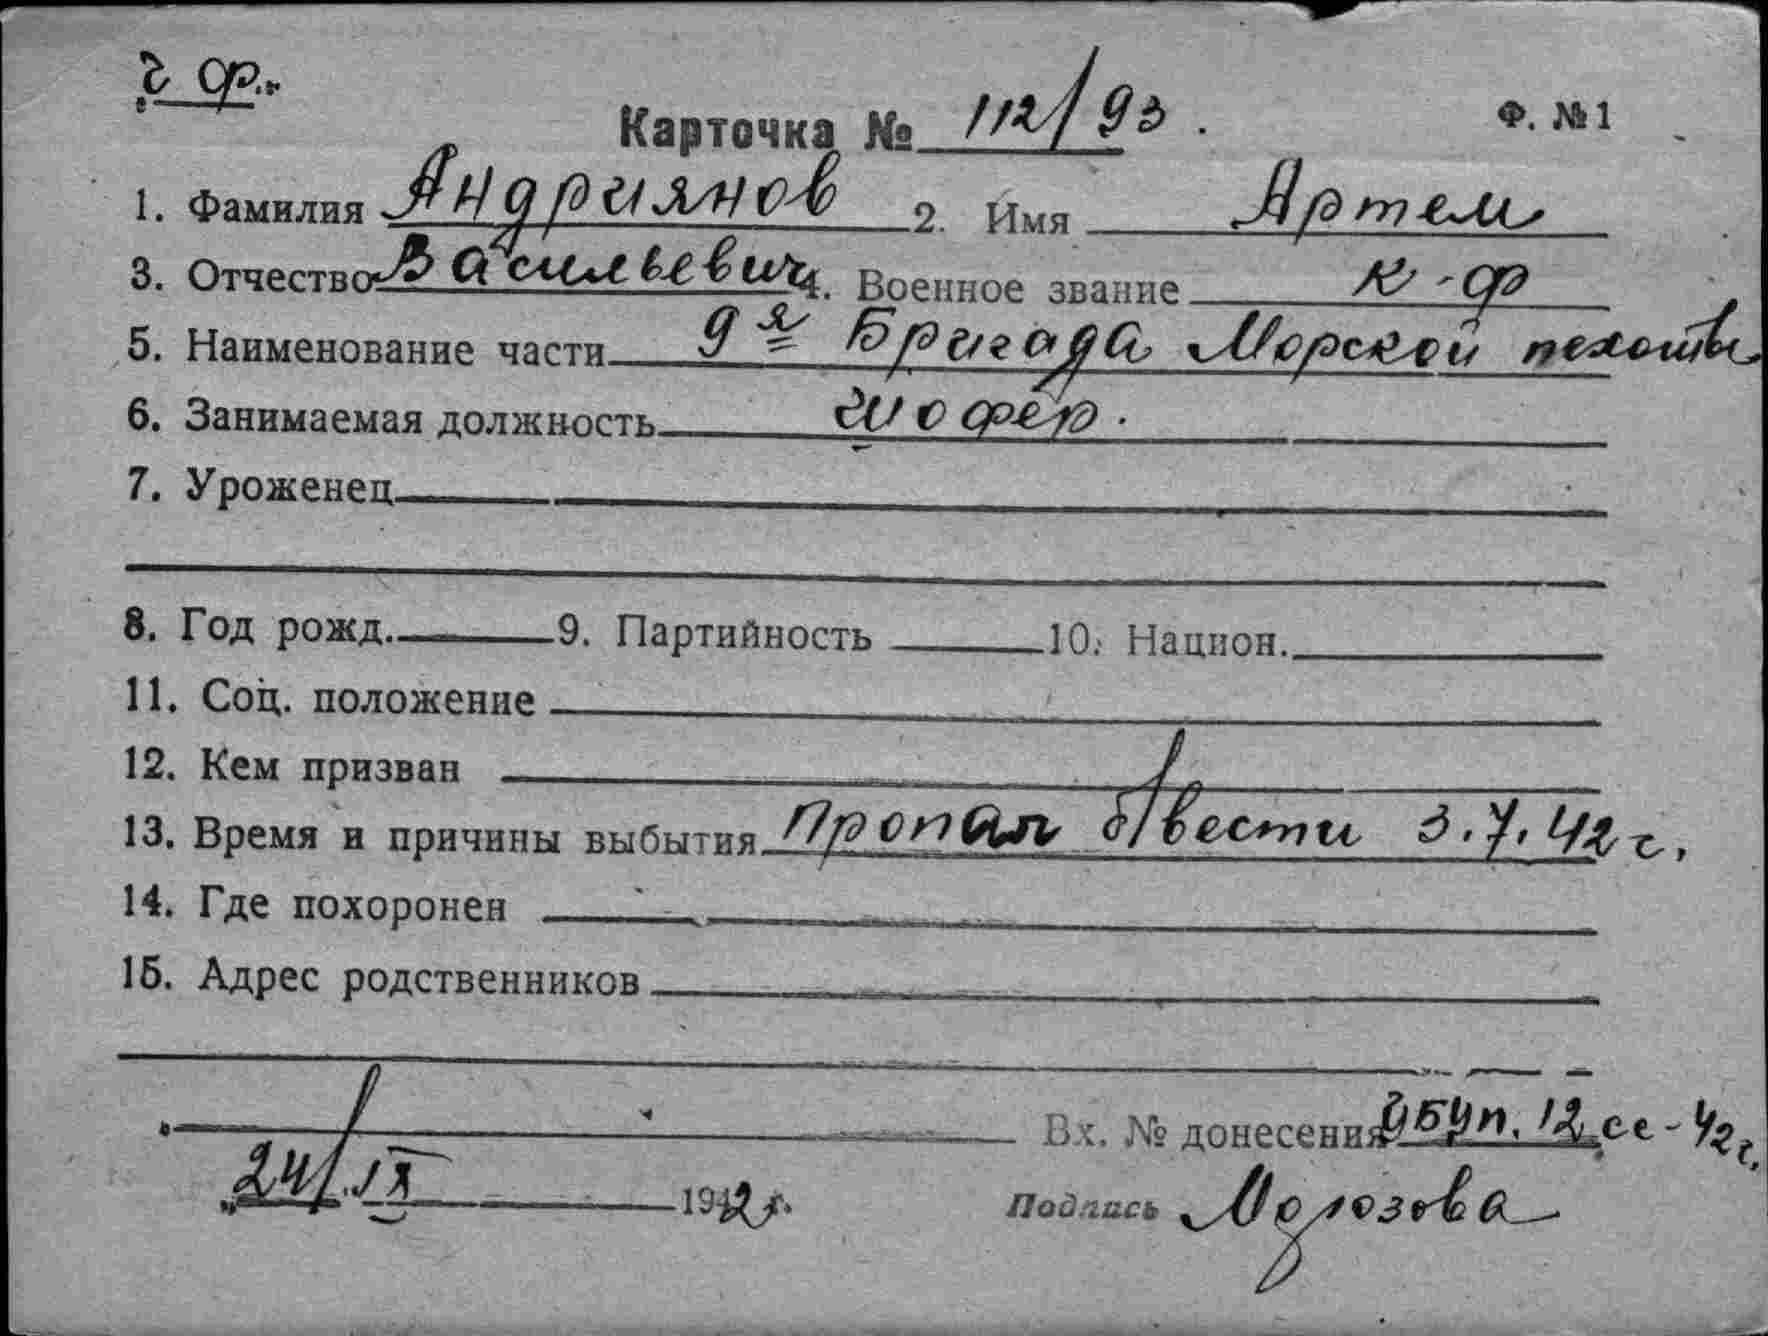 ч ф.
Карточка № 112/93. Ф. №1
1. Фамилия Андриянов 2. Имя Артем
3. Отчество Васильевич 4. Военное звание к-ф
5. Наименование части 9я Бригада Морской пехоты
6. Занимаемая должность шофер.
7. Уроженец
8. Год рожд. 9. Партийность 10. Национ.
11. Соц. положение
12. Кем призван
13. Время и причины выбытия Пропал б/вести 3.7.42 г.
14. Где похоронен
15. Адрес родственников
Вх. № донесения 12 сс-42г.
"24/IX 1942г. Подпись Морозова